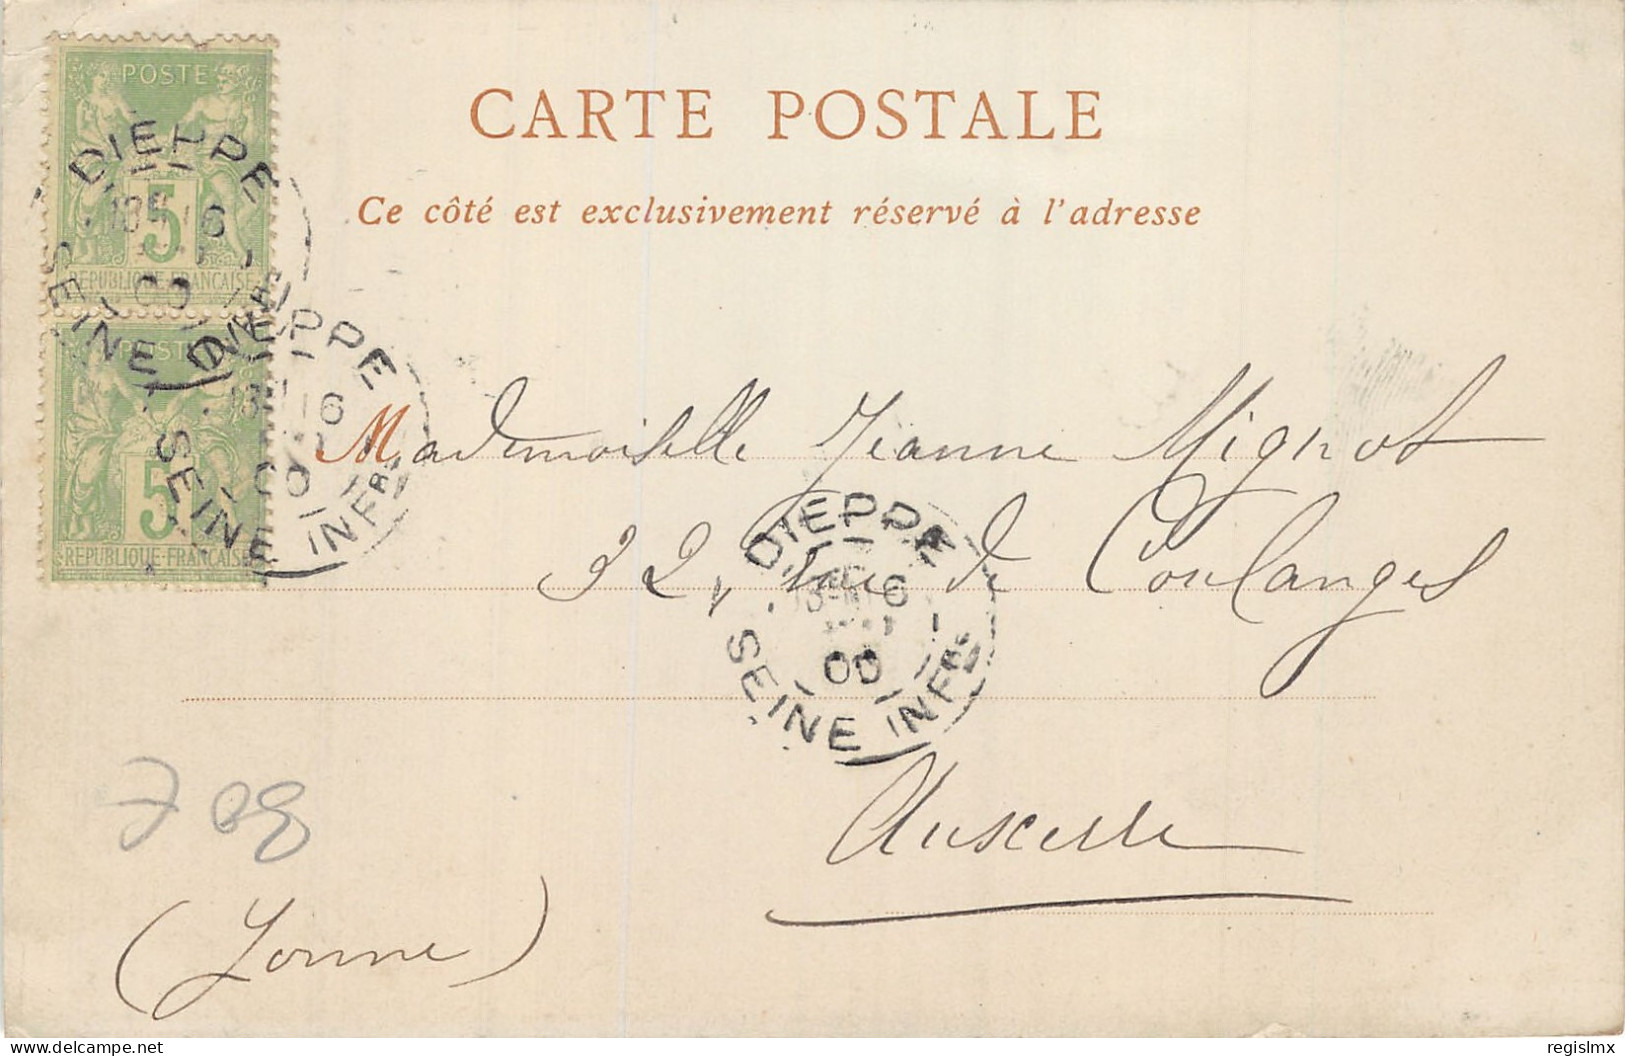 POSTE
5
REPUBLIQUE FRANCAISE
POSTE
5
REPUBLIQUE FRANCAISE
DIEPPE
16
00
SEINE INFRE
DIEPPE
16
00
SEINE INFRE
CARTE POSTALE
Ce côté est exclusivement réservé à l'adresse
Mademoiselle Jeanne Mignot
32, Rue de Coulanges
DIEPPE
6
00
SEINE INFRE
Auxerre
(Yonne)
regislmx